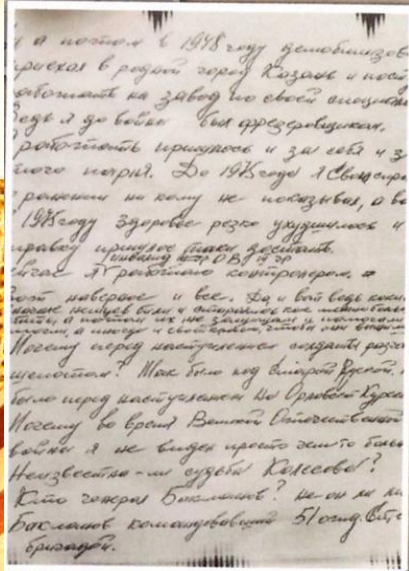 и а потом в 1948 году демобилизов
приехал в родной город Казань и пост
работать на завод по своей специаль
Ведь я до войны был фрезеровщиком.
работать пришлось и за себя и з
того парня. До 1975 года я свою спра
о ранении никому не показывал, а в
1975 году здоровье резко ухудшилось и
справку пришлось таки достать.
инвалид ОВ гр
сейчас я работаю контролером.
Вот наверное и все. Да, и вот ведь
начале
а потом их не и
а иногда и чтобы мы
Почему перед наступлением солдаты разго
шепотом? Так было под Старой Руссой,
было перед наступлением на Орловско Курск
Почему во время Великой Отечественной
войны я не видел просто чем то боль
Неизвестна-ли судьба Колесова?
Кто генерал Бакланов? не он ли
Бакланов командовавший 51 отд.
бригадой.